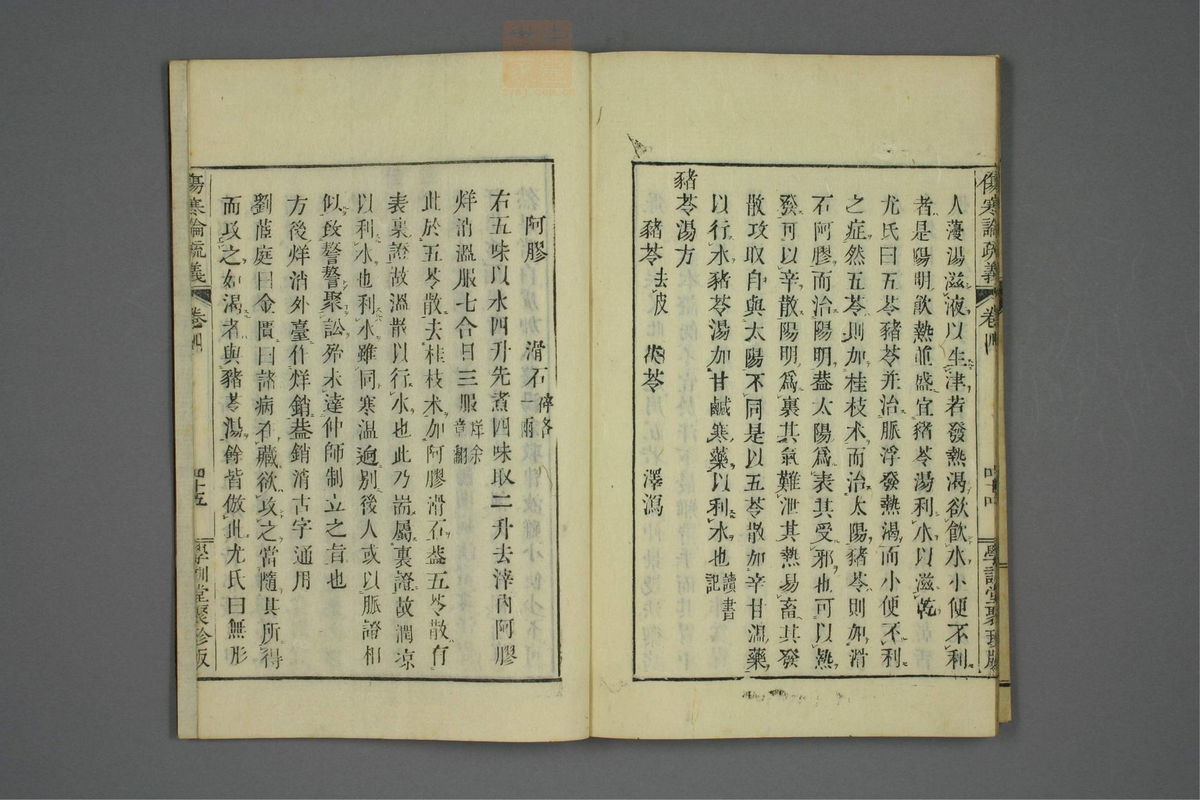 傷寒論疏義
卷四
四十四
學訓堂聚珍版
人葠湯滋液以生津若發熱渴欲飲水小便不利
者是陽明飲熱並盛宜豬苓湯利水以滋乾
尤氏曰五苓豬苓并治脈浮發熱渴而小便不利
之症然五苓則加桂枝术而治太陽豬苓則加滑
石阿膠而治陽明葢太陽爲表其受邪也可以熱
發可以辛散陽明爲裏其氣難泄其熱易畜其發
散攻取自與太陽不同是以五苓散加辛甘溫藥
以行水豬苓湯加甘鹹寒藥以利水也 讀書記
豬苓湯方
豬苓 去皮 茯苓 澤瀉
阿膠 滑石 碎各一兩
右五味以水四升先煮四味取二升去滓內阿膠
烊消溫服七合日三服 烊余章翻
此於五苓散去桂枝术加阿膠滑石葢五苓散有
表裏證故溫散以行水也此乃耑屬裏證故潤凉
以利水也利水雖同寒溫逈別後人或以脈證相
似致謷謷聚訟殆未達仲師制立之旨也
方後烊消外臺作烊銷葢銷消古字通用
劉茝庭曰金匱曰諸病在藏欲攻之當隨其所得
而攻之如渴者與豬苓湯餘皆倣此尤氏曰無形
傷寒論疏義
卷四
四十五
學訓堂聚珍版